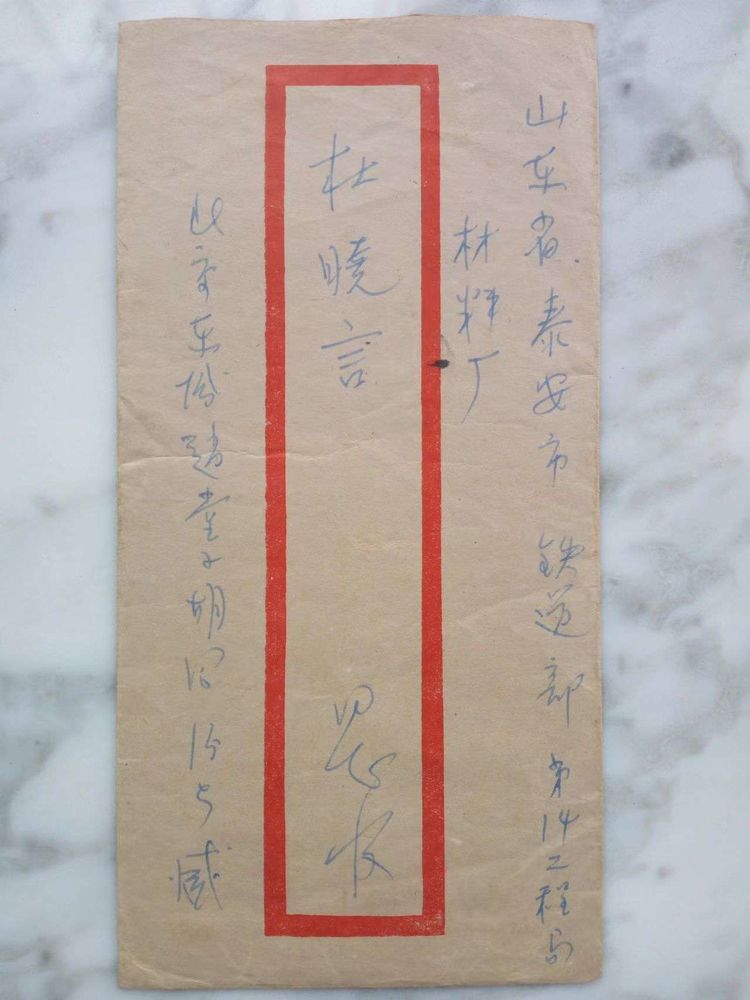 山东省.泰安市 铁道部 第14工程局
材料厂
杜晓言 同志收
北京东城赵堂子胡同15号 臧